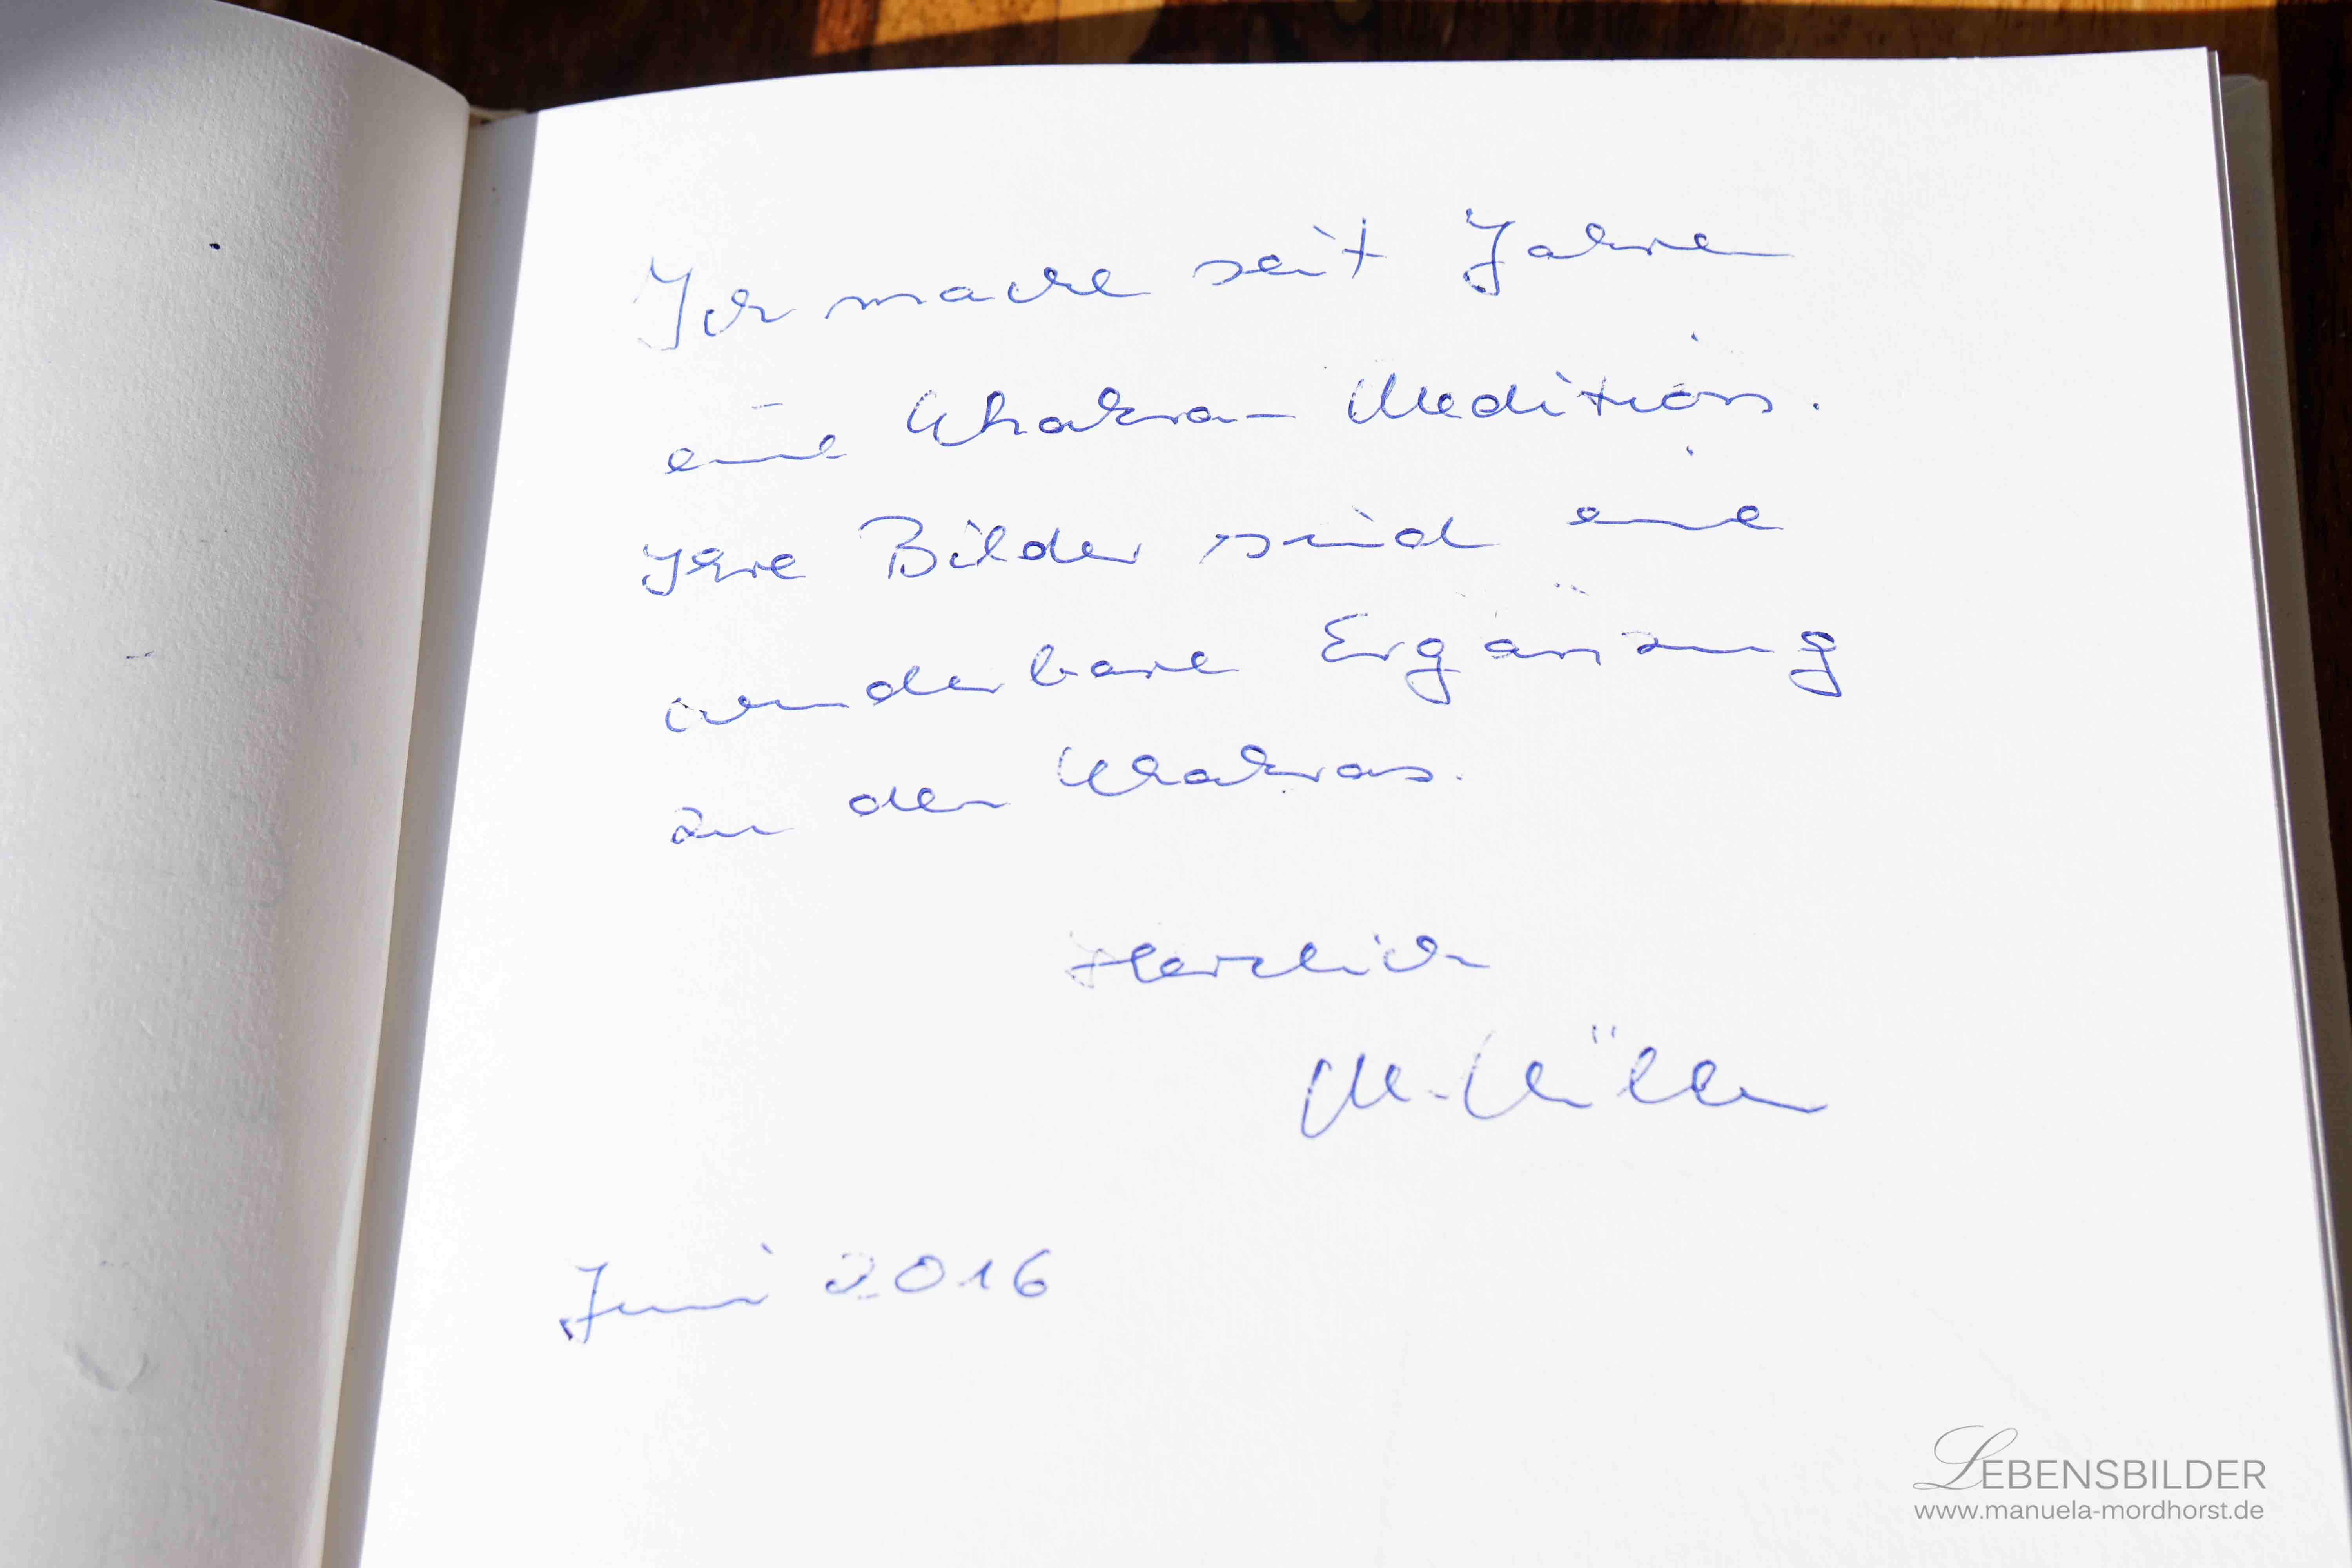 Ich mache seit Jahren
eine Chakra-Medition.
Ihre Bilder sind eine
wunderbare Ergänzung
zu den Chakras.
Herzlich
M. Müller
Juni 2016
LEBENSBILDER
www.manuela-mordhorst.de